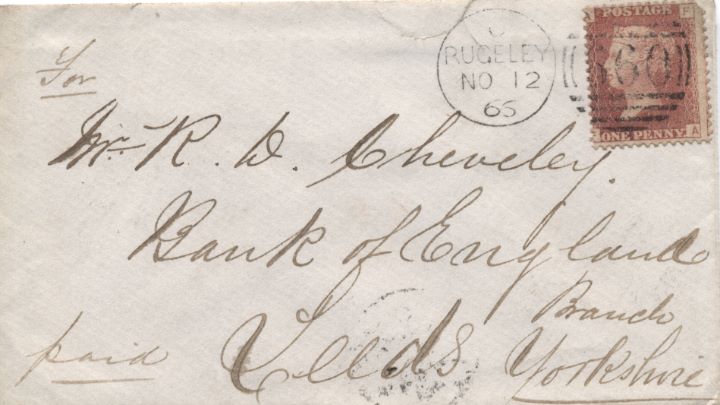 POSTAGE
RUGELEY
NO 12
65
C
660
ONE PENNY
A
For
Mr. R. D. Cheveley.
Bank of England
Branch
paid Leeds Yorkshire